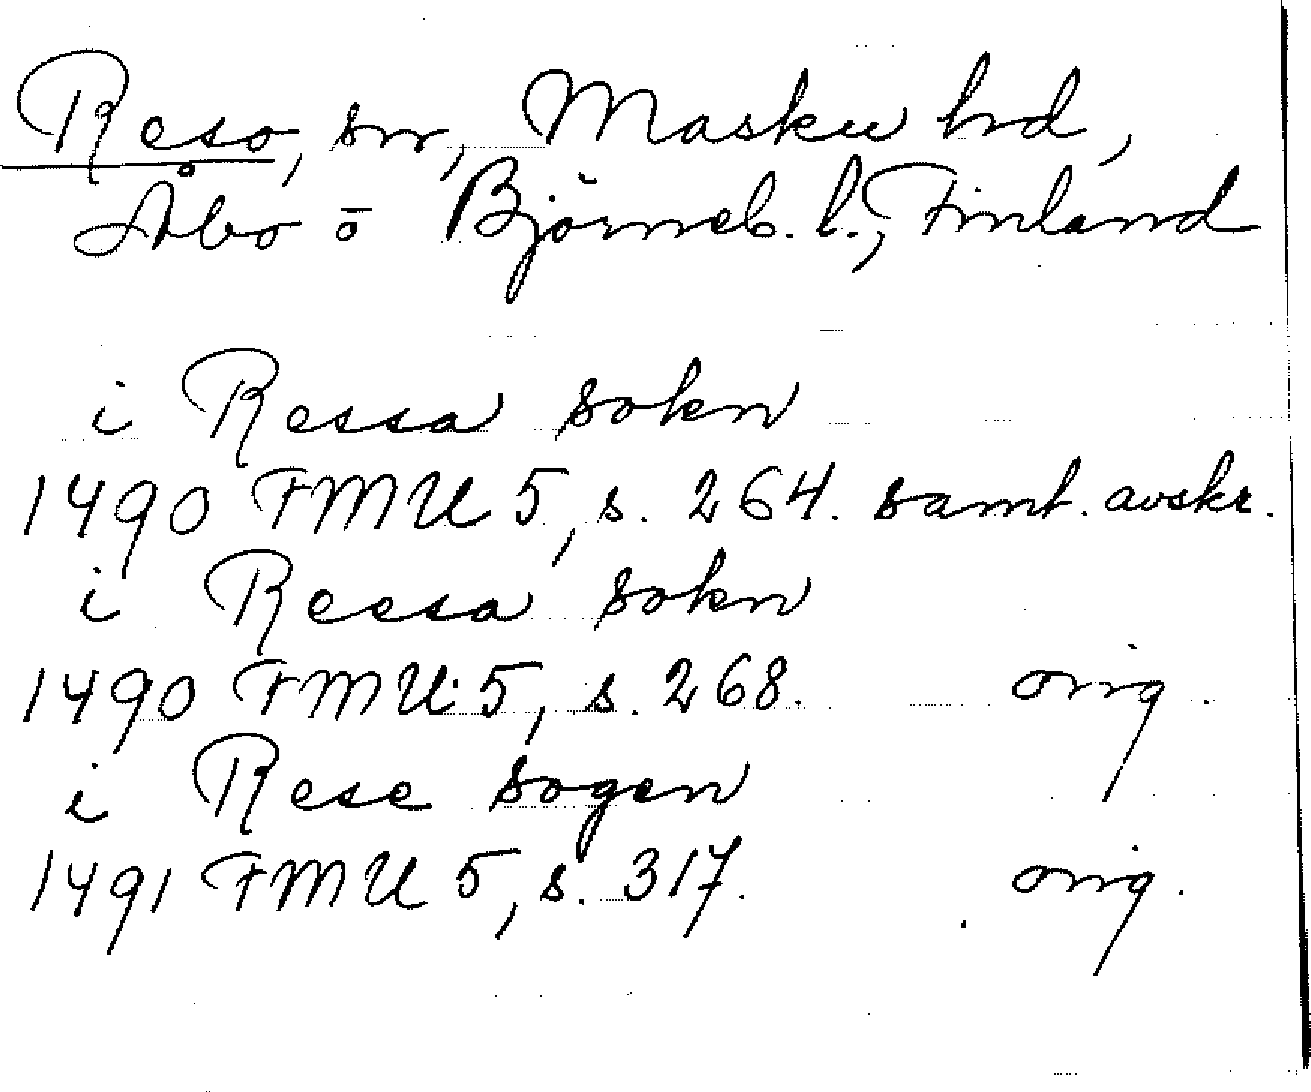 Reso, sn, Masku hd,
Åbo o Björneb. l., Finland
i Ressa sokn
1490 FMU 5, s. 264. samt. avskr.
i Ressa sokn
1490 FMU 5, s. 268. orig.
i Rese sogen
1491 FMU 5, s. 317. orig.